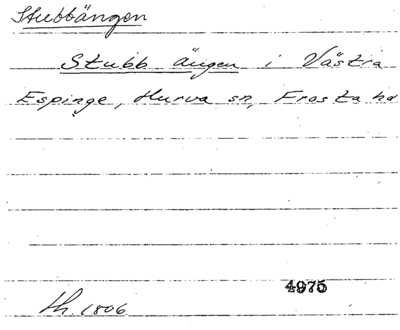 Stubbängen
Stubb ängen i Västra
Espinge, Hurva sn, Frosta hd
4975
lh. 1806